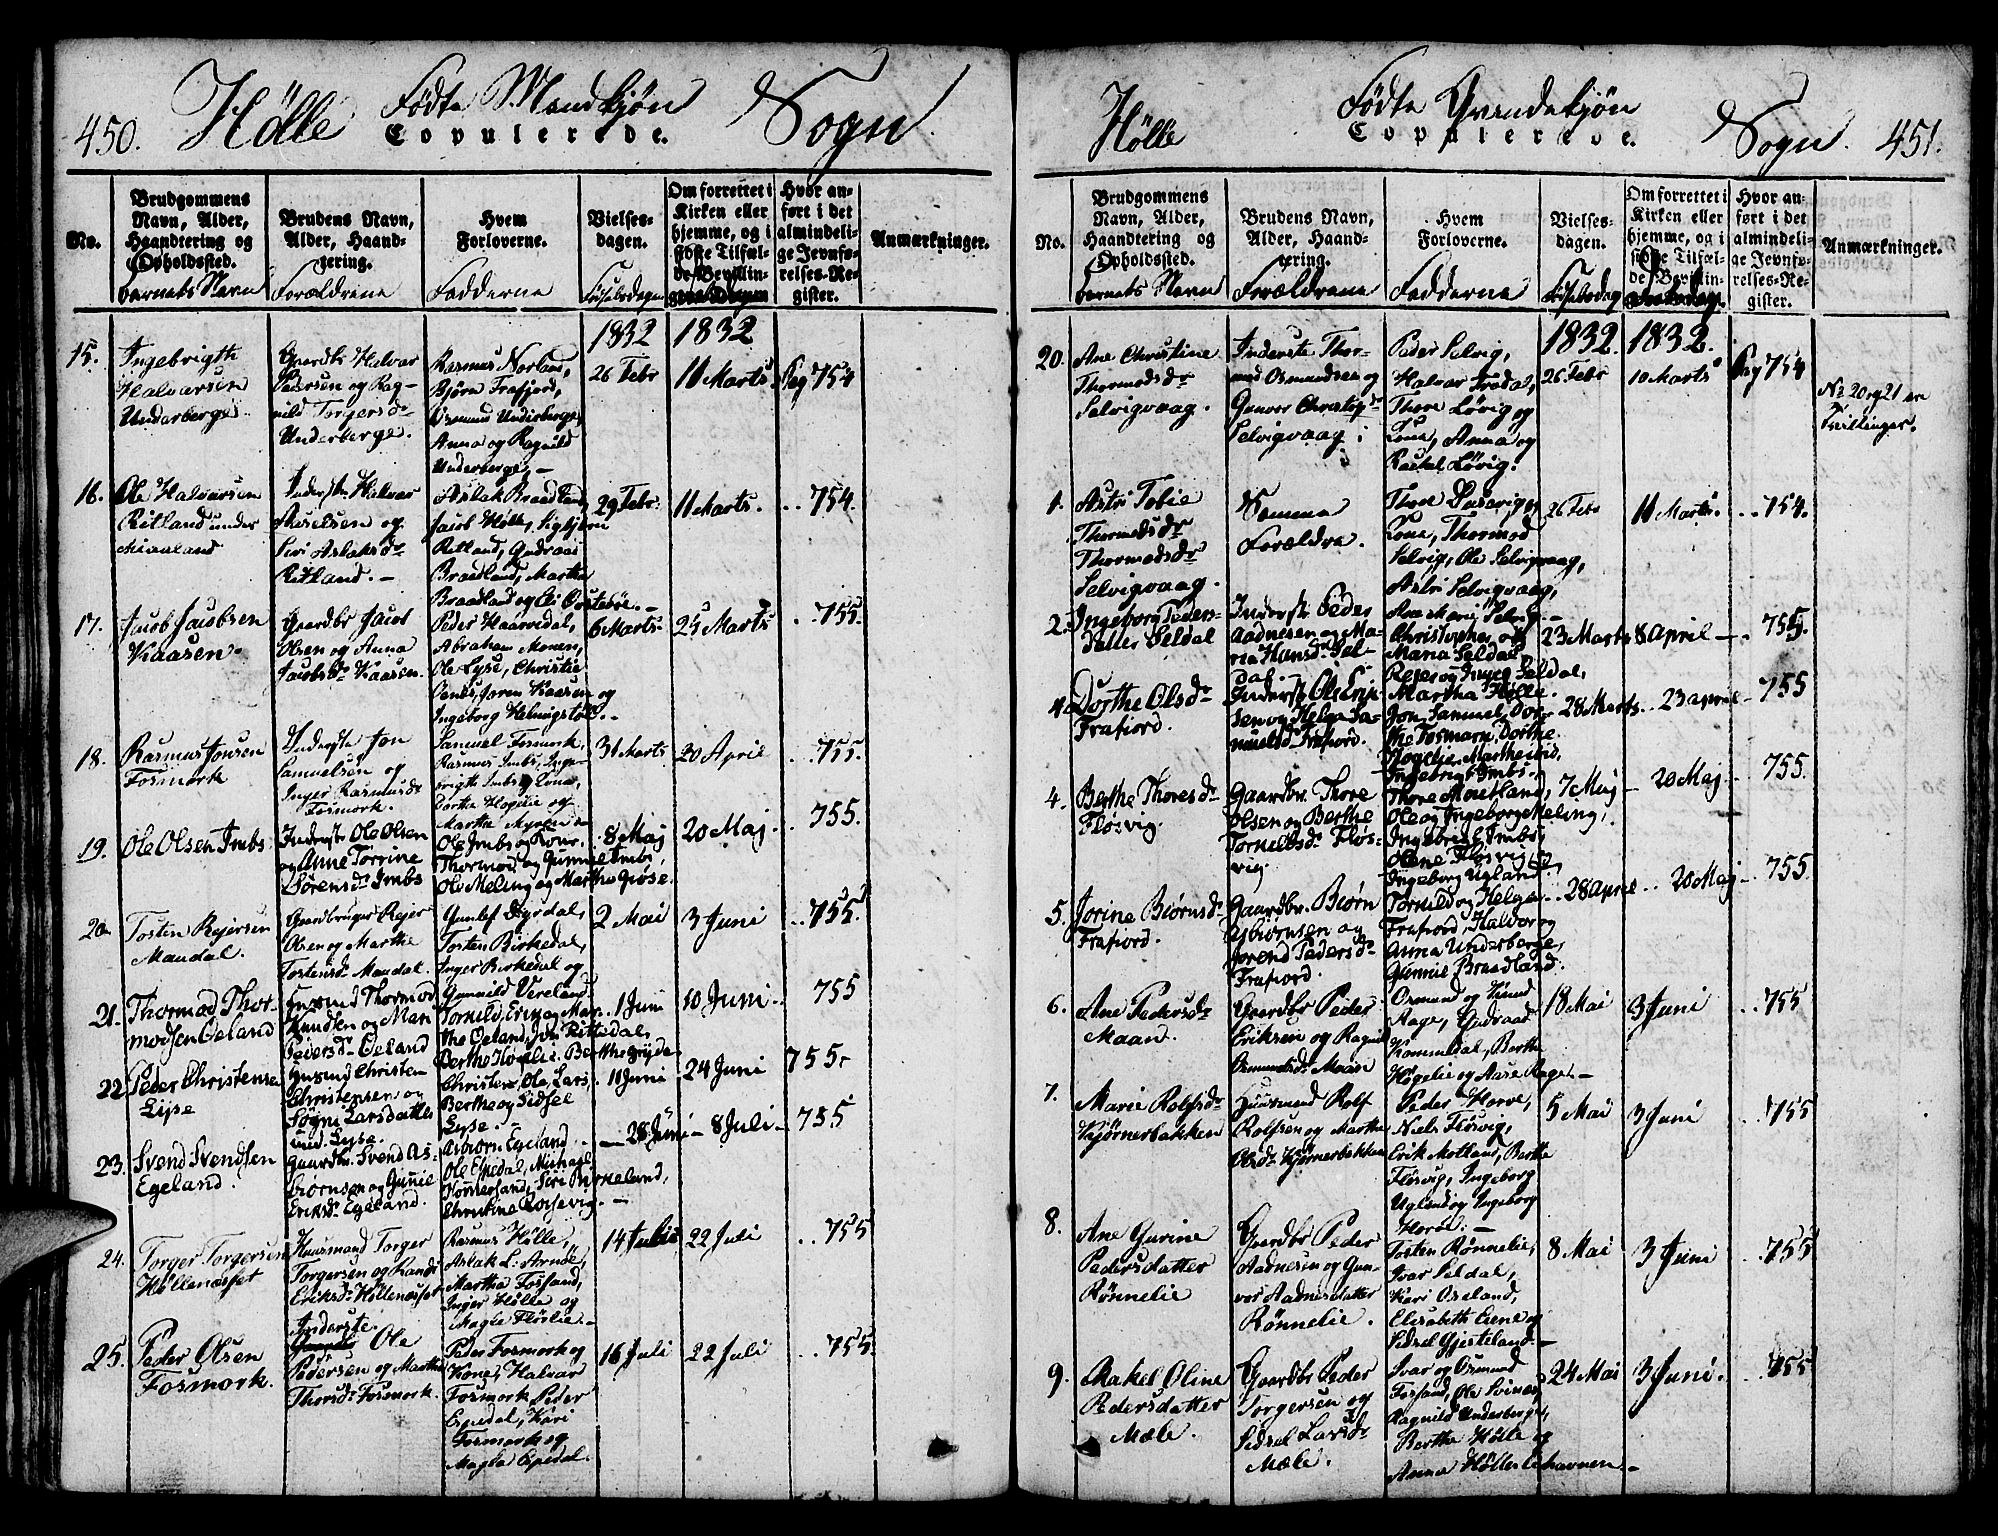 450. Hölle Fødte Mandkjøn Sogn
Copulerede.
No.
Brudgommens Navn, Alder, Haandtering og Opholdssted.
Brudens Navn, Alder, Haandtering.
Hvem Forloverne.
Vielsesdagen.
Om forrettet i Kirken eller hjemme, og i
Hvor anført i det almindelige Jevnførelses-Register.
Anmærkninger.
barnets Navn
Forældrene
Fadderne
Fødselsdagen
1832 1832
15. Ingebrigth
Halvarsen
Underberge
Gaardbr Halvar
Pedersen og Ragnild
Torgersdr
Underberge.
Rasmus Norland,
Bjørn Frafjord,
Osmund Underberge,
Anna og Ragnild
Underberge, –
26 Febr 11 Marts Pag 754
16. Ole Halvarsen
Ritland under
Inderste Halvar
Axselsen og
Siri Aslaksdr
Ritland. –
Aslak Braadland,
Jacob Hölle, Sigbjørn
Ritland, Gudraas
Braadland, Martha
Braadland og
29 Febr. 11 Marts. .. 754.
17. Jacob Jacobsen
Kaasen.
Gaardbr Jacob
Olsen og Anna
Jacobsdr Kaasen.
Peder Haavedal,
Abraham Monen,
Ole Lyse, Christie
Joren Kaasen og
Ingeborg Helmigstøl. –
6 Marts 25 Marts .. 755.
18. Rasmus Jonsen
Fosmork
Inderste Jon
Samuelsen og
Inger Rasmusdr
Fosmork.
Samuel Fosmork,
Rasmus Imbs, Ingebrigth
Imbs og Kone,
Dorthe Høgelie og
Martha Myren
31 Marts 20 April .. 755.
19. Ole Olsen Imbs
Inderste Ole Olsen
og Anne Torrine
Sørensdr Imbs
Ole Imbs og Kone,
Thormod og Gunnie Imbs,
Ole Meling og Martha Giøse.
8 Maj 20 Maj .. 755.
20. Tosten Rejersen
Maudal.
Gaardbruger Rejer
Olsen og Martha
Tostensdr Maudal.
Gunlef Dyrdal,
Tosten Birkedal,
Inger Birkedal og
Gunnild Vereland
2 Mai 3 Juni .. 755.
21. Thormod Thormodsen
Eeland
Husmd Thormod
Knudsen og Mari
Pedersdr Eeland
Tornild, Erik og Marthe
Eeland, Jon Rettedal,
Berthe Høgelie
1 Juni 10 Juni .. 755
22. Peder Christense
Lyse
Husmd Christen
Christensen og
Søgni Larsdatter
Lyse.
Christen, Ole, Lars,
Berthe og Sidsel
Lyse. –
11 Juni 24 Juni 755.
23. Svend Svendsen
Egeland.
Gaardbr. Svend Asbiørnsen
og Gunie
Eriksdr Egeland.
Asbiørn Egeland,
Ole Espedal, Michael
Kommersand, Siri Birkeland,
Christine Rossevig. –
28 Juni – 8 Juli – 755
24. Torger Torgersen
Höllenæsset
Huusmand Torger
Torgersen og Randi
Eriksdr Höllenæsset
Rasmus Hölle,
Aslak L: Arnöe,
Martha Fossand,
Inger Hölle og
Magla Flørlie. –
14 Julii 22 Juli .. 755
25. Peder Olsen
Fosmork.
Inderste
Ole
Pedersen og Martha
Thorsdr Fosmork.
Peder Fosmork og
Kone, Halvar
Fosmork Peder
Espedal, Kari
Fosmork og
Magla Espedal.
16 Juli 22 Juli .. 755.
Hölle Fødte Qvindekjøn Sogn. 451.
Copulerede.
No.
Brudgommens Navn, Alder, Haandtering og Opholdssted.
Brudens Navn, Alder, Haandtering.
Hvem Forloverne.
Vielsesdagen.
Om forrettet i Kirken eller hjemme, og i
Hvor anført i det almindelige Jevnførelses-Register.
Anmærkninger.
barnets Navn
Forældrene
Fadderne
Fødselsdag
1832. 1832.
20. Ane Christine
Thormodsdr
Selvigvaag.
Inderste Thormod
Osmundsen og
Gunvor Christophdr
Selvigvaag i
Peder Selvig,
Halvar Frødal,
Thore Løvig og
Kone, Anna og
Rachel Løvig.
26 Febr 10 Marts Pag 754
No 20 og 21 ere
Tvillinger.
1. Astri Tobie
Thormodsdr
Thormodsdr
Selvigvaag.
Samme
Forældre.
Thore og
Kone, Thormod
Selvig, Ole Selvigvaag,
Astri Selvigvaag,
26 Febr 11 Marts .. 754.
2. Ingeborg Pedersdatter
Seldal
Inderste Peder
Aadnesen og Maria
Hansdr Seldal. –
Christopher og
Maria Seldal,
Rejer og Inger Seldal,
Martha Hölle.
23 Marts 8 April – .. 755.
4. Dorthe Olsdr
Frafiord.
Inderste Ole Eriksen
og Helga Samuelsdr
Frafiord.
Jon, Samuel, Dorthe
Fosmark, Dorthe
Høgelie, Marthe
Ingebrigt Imbs.
28 Marts .. 23 april – 755
4. Berthe Thoresdr
Fløsvig.
Gaardbr. Thore
Olsen og Berthe
Torneldsdr Fløsvig.
Thore Moutland,
Ole og Ingeborg Meling,
Ingebrigt Imbs
Olene Fløsvig og
Ingeborg Ugland.
7 Maj – 20 Maj – 755.
5. Jorine Biørnsdr
Frafiord.
Gaardbr. Biørn
Ysbiørnsen og
Jorend Pedersdr
Frafiord.
Tornild og Helga
Frafiord, Halvor og
Anna Underberge,
Gunnie Braadland.
.. 28 april .. 20 Maj – 755.
6. Ane Pedersdr
Maan.
Gaardbr Peder
Eriksen og Ragnild
Osmundsdr Maan
Osmund og Knud
Aage, Gudraad
Kommedal, Berthe
Høgelie og Aase Aage. –
18 Mai 3 Juni .. 755
7. Marie Rolfsdr
Kjørnerbakken
Huusmand Rolf
Rolfsen og Martha
Olsdr Kjørnerbakken
Peder Horve,
Niels Fløsvig,
Erik Motland, Berthe
Fløsvig, Ingeborg
Ugland og Ingeborg
5 Mai 3 Juni .. 755
8. Ane Gurine
Pedersdatter
Rønnelie
Gaardbr Peder
Aadnesen og Gunvor
Aadnesdatter
Rønnelie.
Tosten Rønnelie,
Ivar Seldal,
Kari Oseland,
Elisabeth Eiene og
Sidsel Gjesteland. –
8 Mai 3 Juni .. 755
9. Rakel Oline
Pedersdatter
Mæle.
Gaardbr Peder
Torgersen og
Sidsel Larsdr
Mæle.
Ivar og Osmund
Fossand, Ole Svines,
Ragnild Underberge,
Berthe Hölle og
Anna Höllerlehavnen. –
24 Mai 3 Juni. .. 755